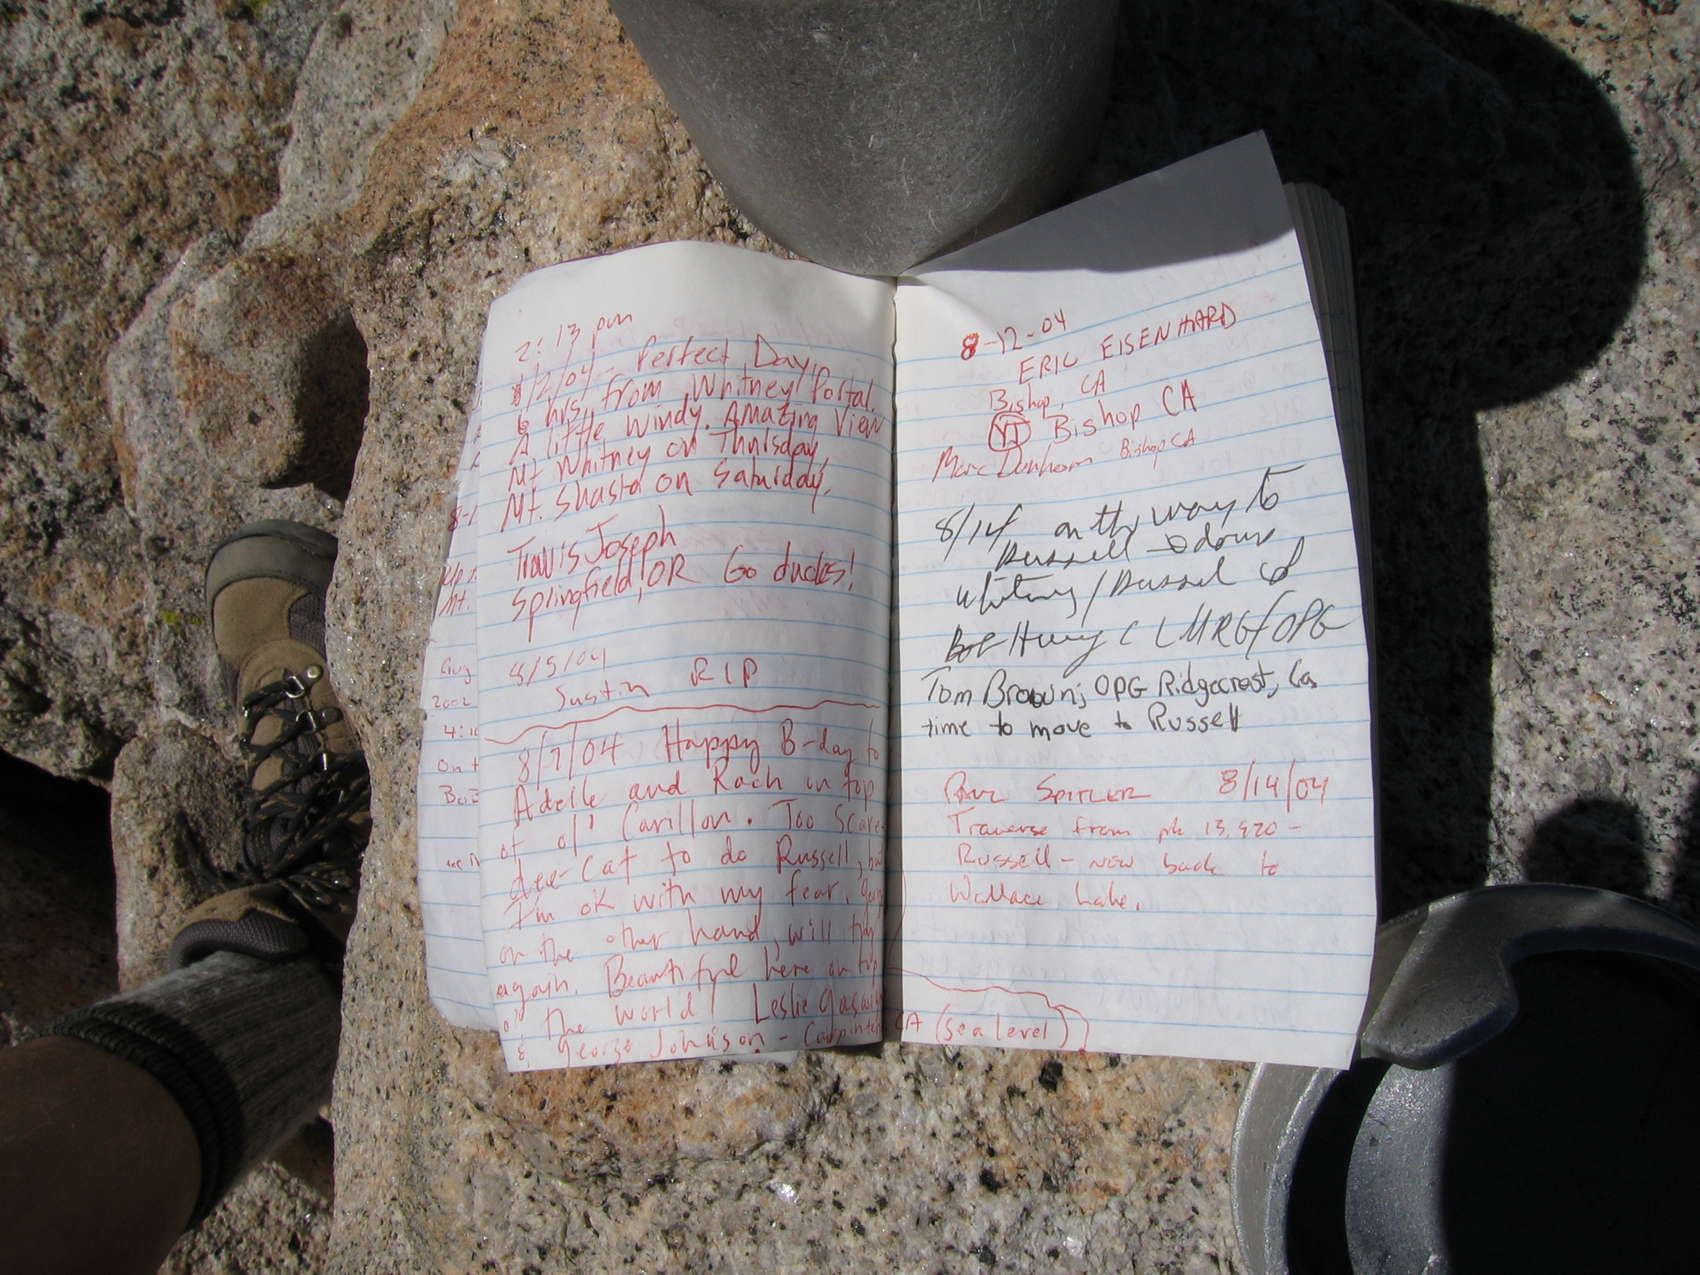 2:13 pm
8/2/04 - Perfect Day,
6 hrs. from Whitney Portal.
A little windy. Amazing View
Mt Whitney on Thursday,
Mt. Shasta on Saturday.
Travis Joseph
Springfield, OR Go ducks!
8/5/04
Justin RIP
8/7/04 Happy B-day to
Adelle and Rach on top
of ol' Carillon. Too scare-
dee-cat to do Russell, but
I'm ok with my fear.
on the other hand, will try
again. Beautiful here on top
o' the world! Leslie
& George Johnson - Carpinteria CA (sea level)
8-12-04
ERIC EISENHARD
Bishop, CA
Bishop CA
Marc Dunham Bishop CA
8/14 on the way to
Russell → down
Whitney / Russel col
Bob Huey C LMRG/OPG
Tom Brown; OPG Ridgecrest, Ca
time to move to Russell
Spitler 8/14/04
Traverse from pk 13,920 -
Russell - now back to
Wallace Lake.